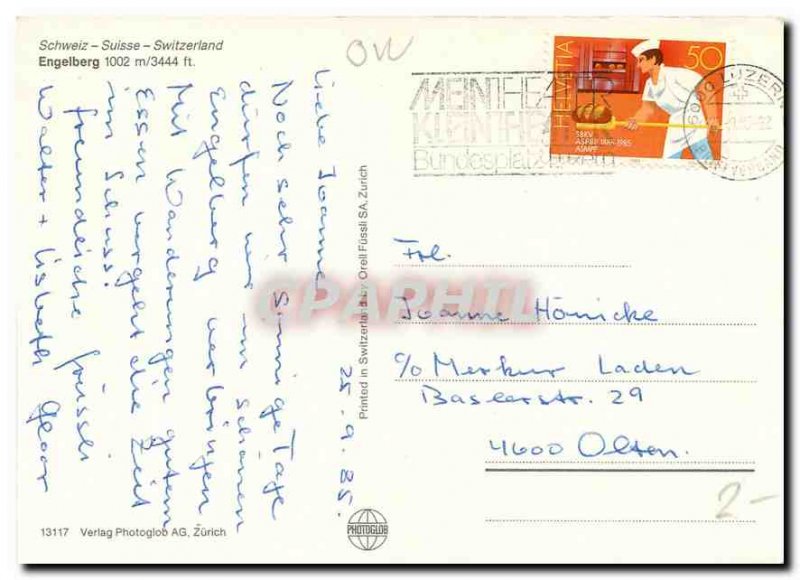 Schweiz – Suisse – Switzerland
Engelberg 1002 m/3444 ft.
Liebe Joanne
25.9.85.
Noch sehr sonnige Tage
dürfen wir im schönen
Engelberg verbringen
Mit Wanderungen gutem
Essen vergeht die Zeit
im Schuss!
freundliche Grüssli
Walter + Lisbeth
13117 Verlag Photoglob AG, Zürich
PHOTOGLOB
Printed in Switzerland by Orell Füssli SA, Zurich
OW
MEIN THEATER
KLEINTHEATER
Bundesplatz Luzern
HELVETIA
50
SBKV
1885-1985
6000 LUZERN
CPARPHIL
Frl.
Joanne Hönicke
c/o Merkur Laden
Baslerstr. 29
4600 Olten.
2.-